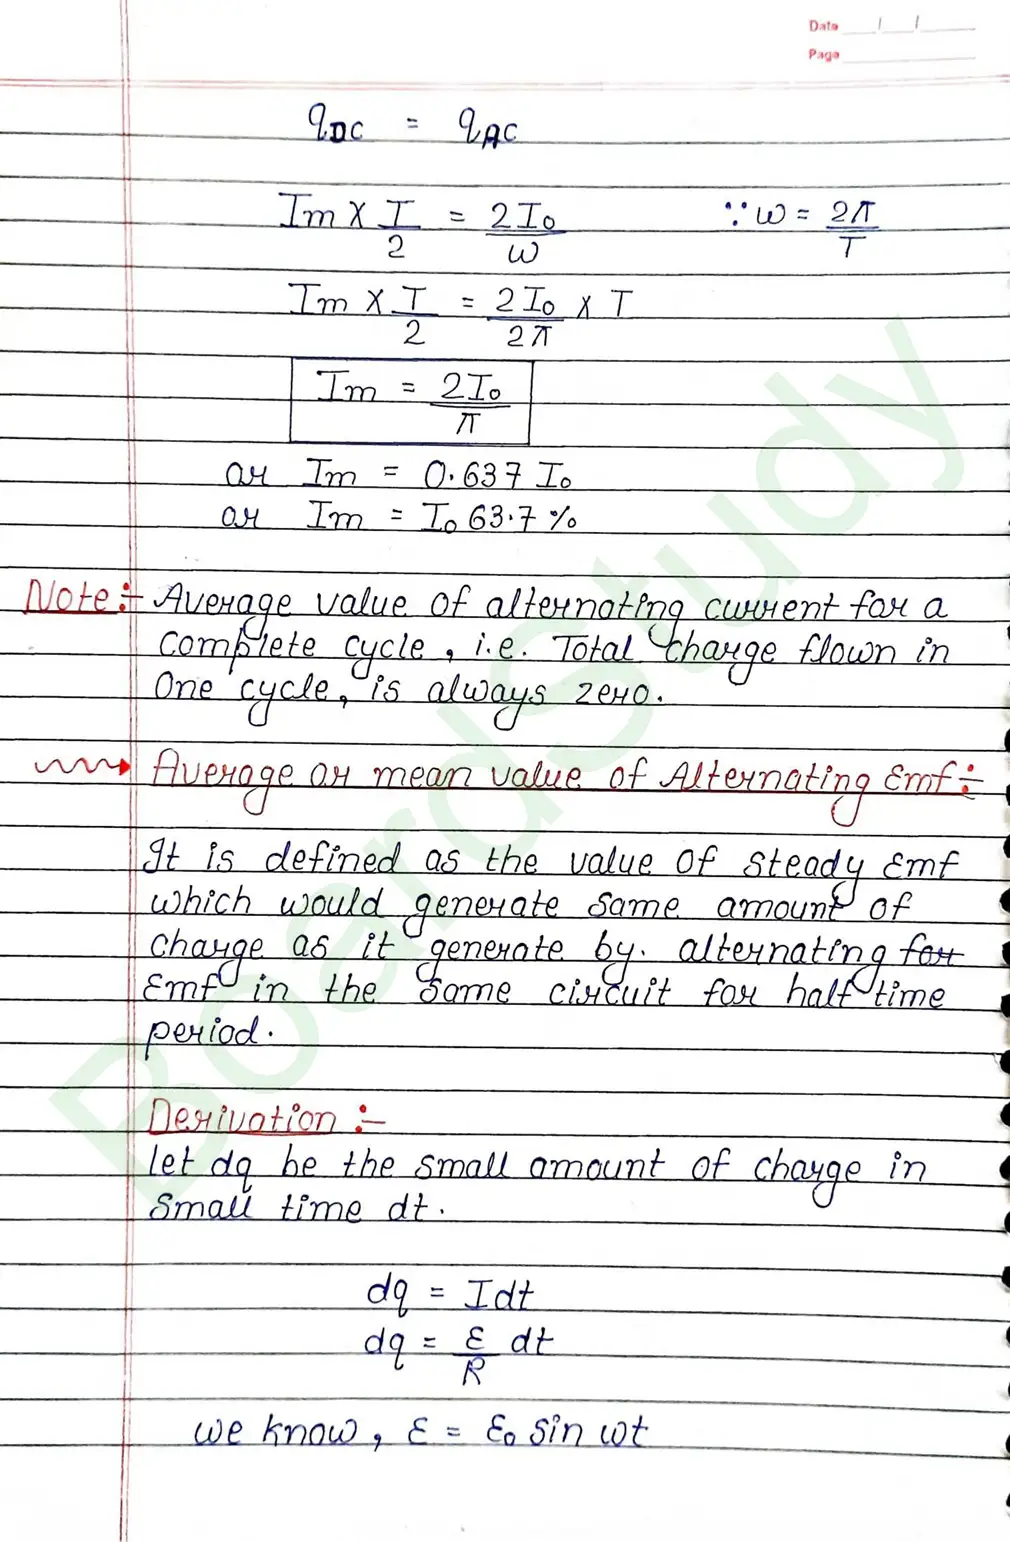 Date / /
Page
qDC = qAC
Im X I/2 = 2I0/ω ∵ ω = 2π/T
Im X T/2 = 2I0/2π X T
Im = 2I0/π
or Im = 0.637 I0
or Im = I0 63.7 %
Note:- Average value of alternating current for a
complete cycle, i.e. Total charge flown in
One cycle, is always zero.
Average or mean value of Alternating Emf:-
It is defined as the value of steady Emf
which would generate same amount of
charge as it generate by. alternating for
Emf in the same circuit for half time
period.
Derivation :-
let dq be the small amount of charge in
small time dt.
dq = Idt
dq = ε/R dt
we know, ε = ε0 sin ωt
BoardStudy